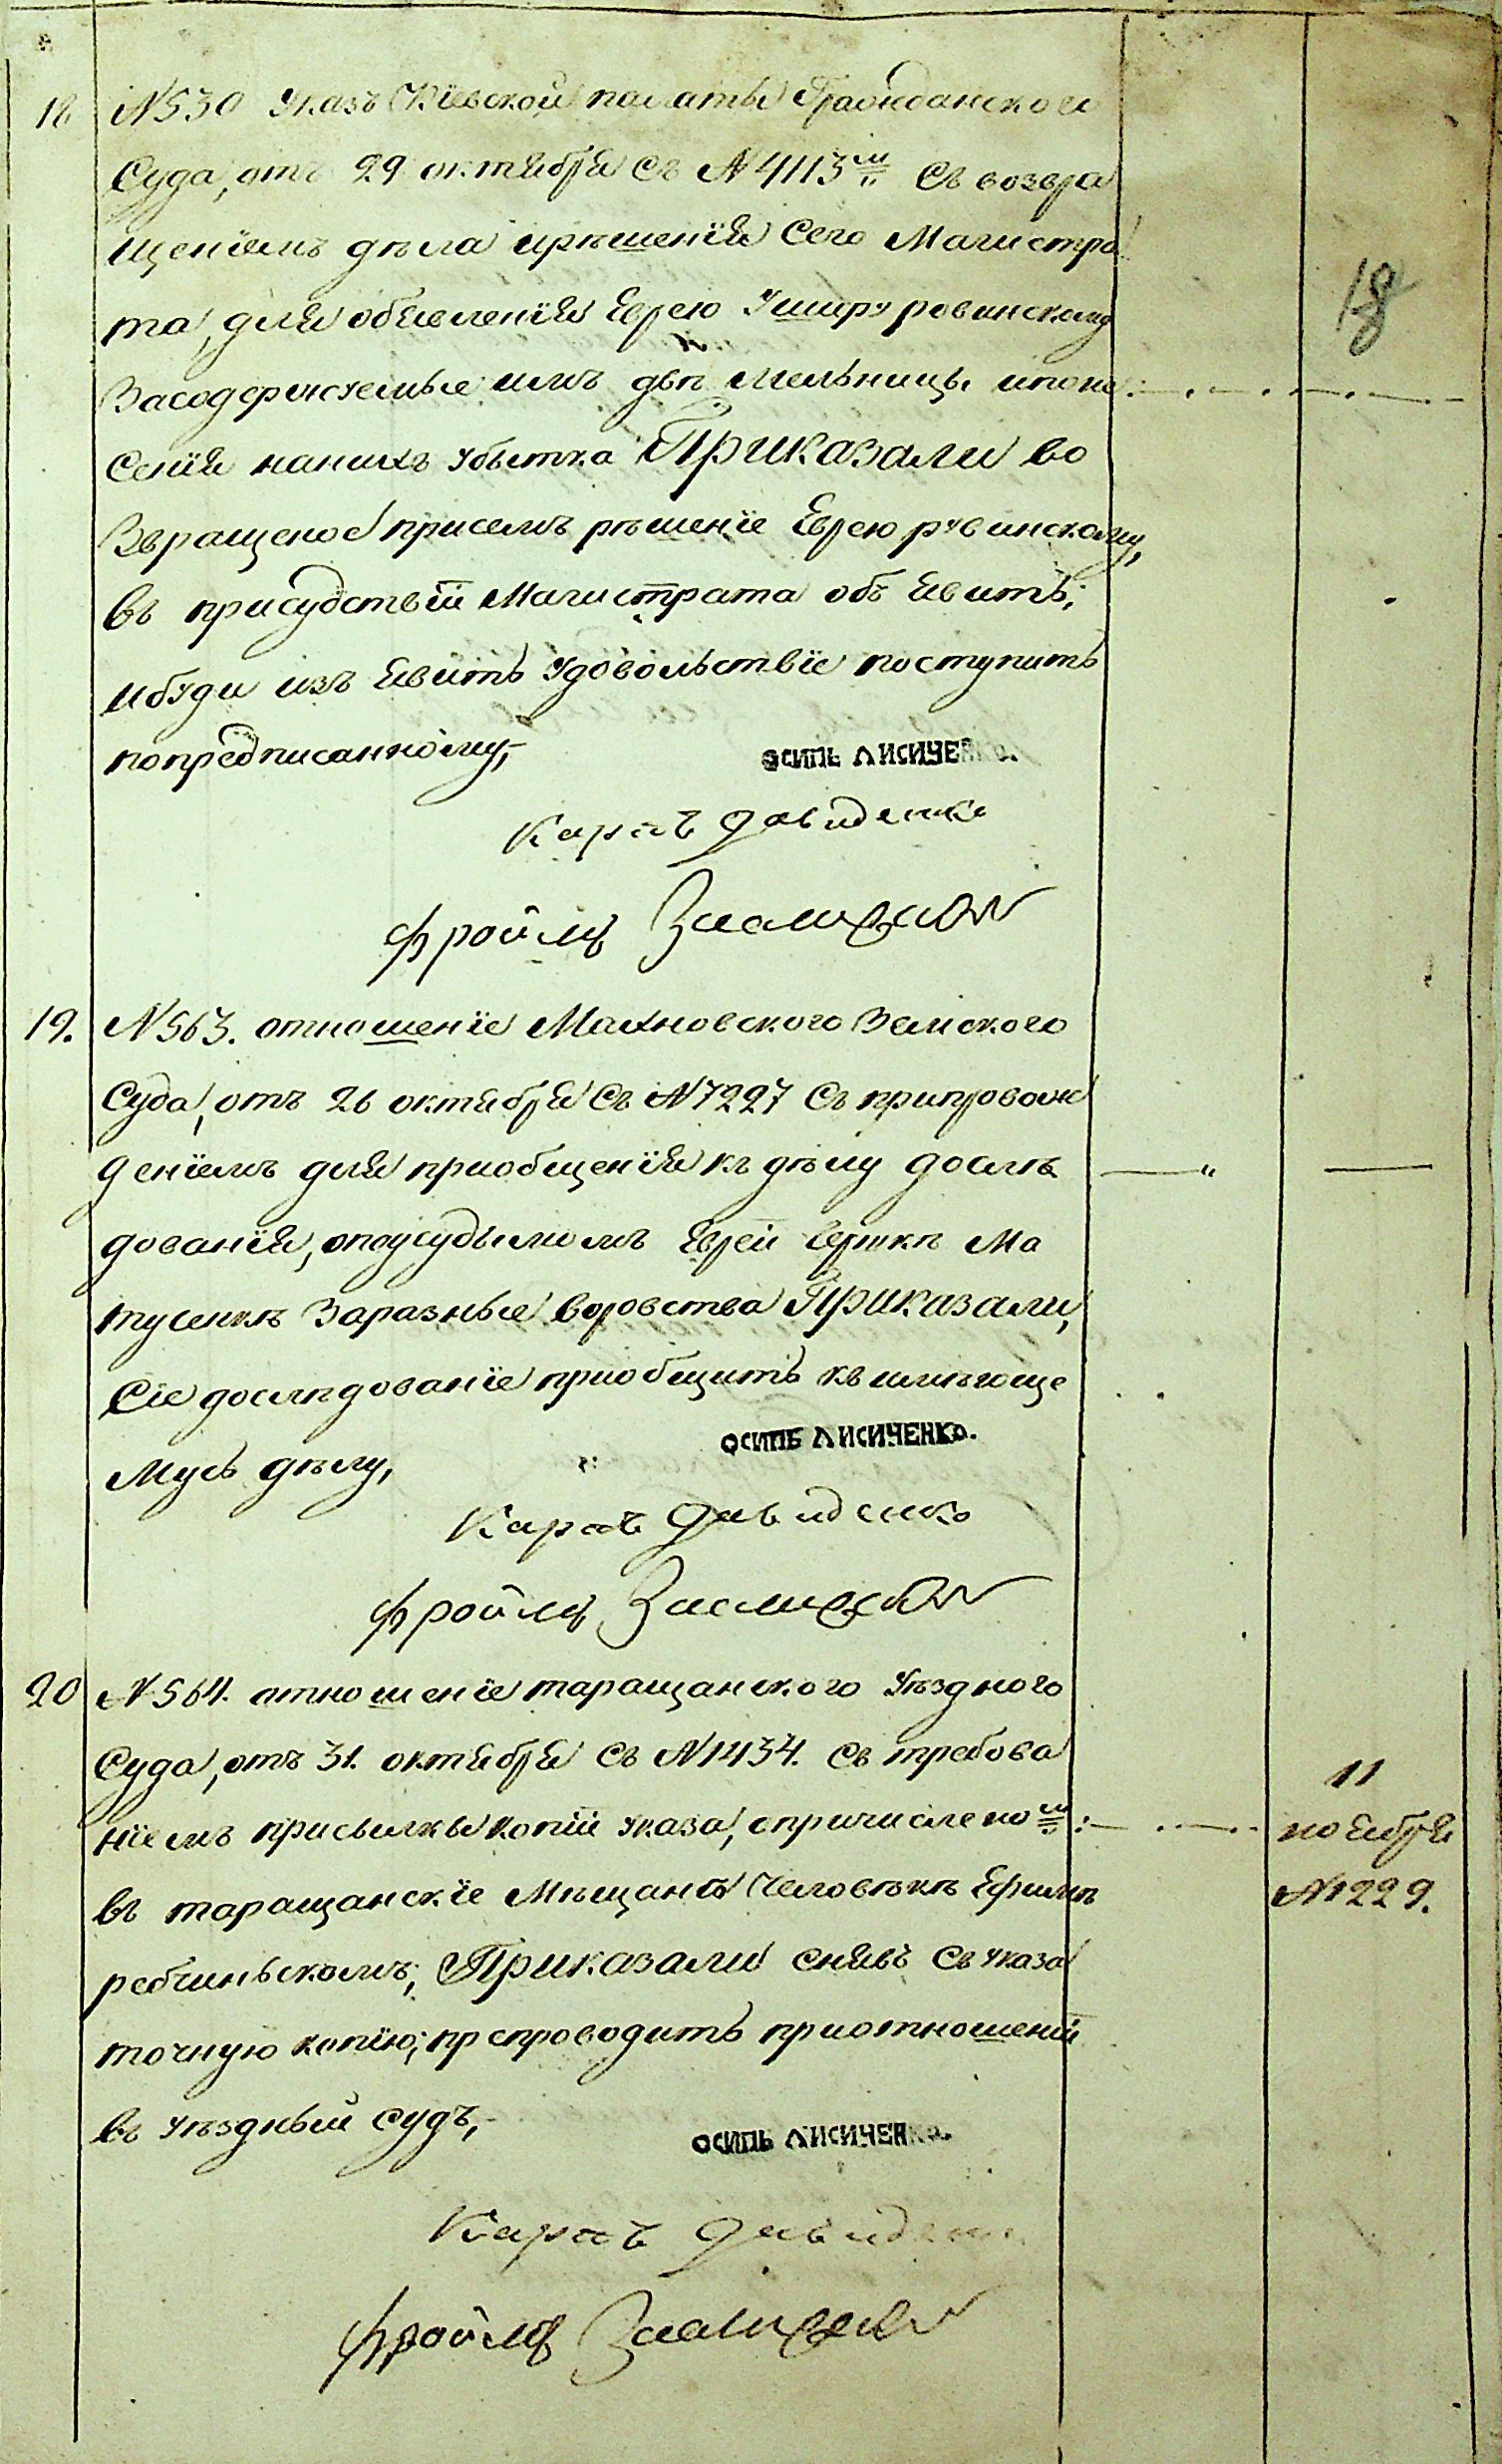 18 №530 Указъ Кіевской палаты Гражданского
Суда, отъ 29 октября съ №4113м съ возвра
щеніемъ дѣла ирѣшенія Сего Магистра
та, для объявленія Еврею Уширу ровинскому
18
Засодержаемые имъ двѣ мельницы ипоне
сенія нанихъ убытка Приказали во
звращеное присемъ рѣшеніе Еврею рувинскому,
въ присудствіи Магистрата объ явить;
ибуди изъ явить Удовольствіе поступить
попредписанному,
ОСИПЬ ЛИСИЧЕНКО.
Карпъ Давиденко
Фроимъ
19. №563. отношеніе Махновского Земского
Суда, отъ 26 октября съ №7227 съ припровож
деніемъ для пріобщенія къ дѣлу дослѣ
дованія, оподсудимомъ Евреи Гершкѣ Ма
тусенкѣ Заразные воровства Приказали,
Сіе дослѣдованіе пріобщить къ имѣюще
муся дѣлу,
ОСИПЬ ЛИСИЧЕНКО.
Карпъ Давиденко
Фроимъ
20 №564. отношеніе таращанского Уѣздного
Суда, отъ 31. октября съ №1434. съ требова
ніемъ присылкы копіи указа, опричислено м
въ таращанскіе Мѣщаны Человѣкѣ Ефимѣ
11
ноября
№1229.
ребчиньскомъ; Приказали снявъ съ указа
точную копію; препроводить приотношеніи
въ уѣздный судъ,
ОСИПЬ ЛИСИЧЕНКО.
Карпъ Давиденко
Фроимъ